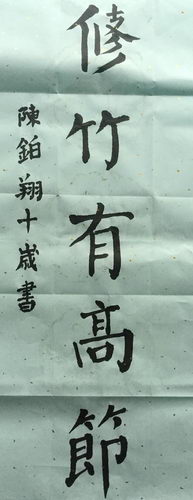 修竹有高節
陳鉑翔十歲書